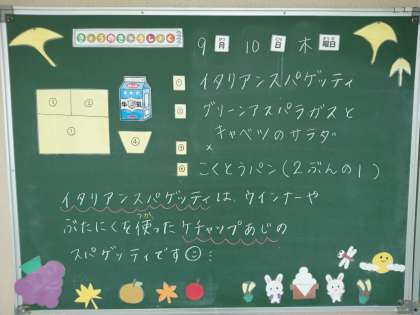 きょうのきゅうしょく
9月10日木曜日
① ② ③ ④
牛乳
イタリアンスパゲッティ
グリーンアスパラガスと
キャベツのサラダ
こくとうパン(2ぶんの1)
イタリアンスパゲッティは、ウインナーや
ぶたにくを使ったケチャップあじの
スパゲッティです